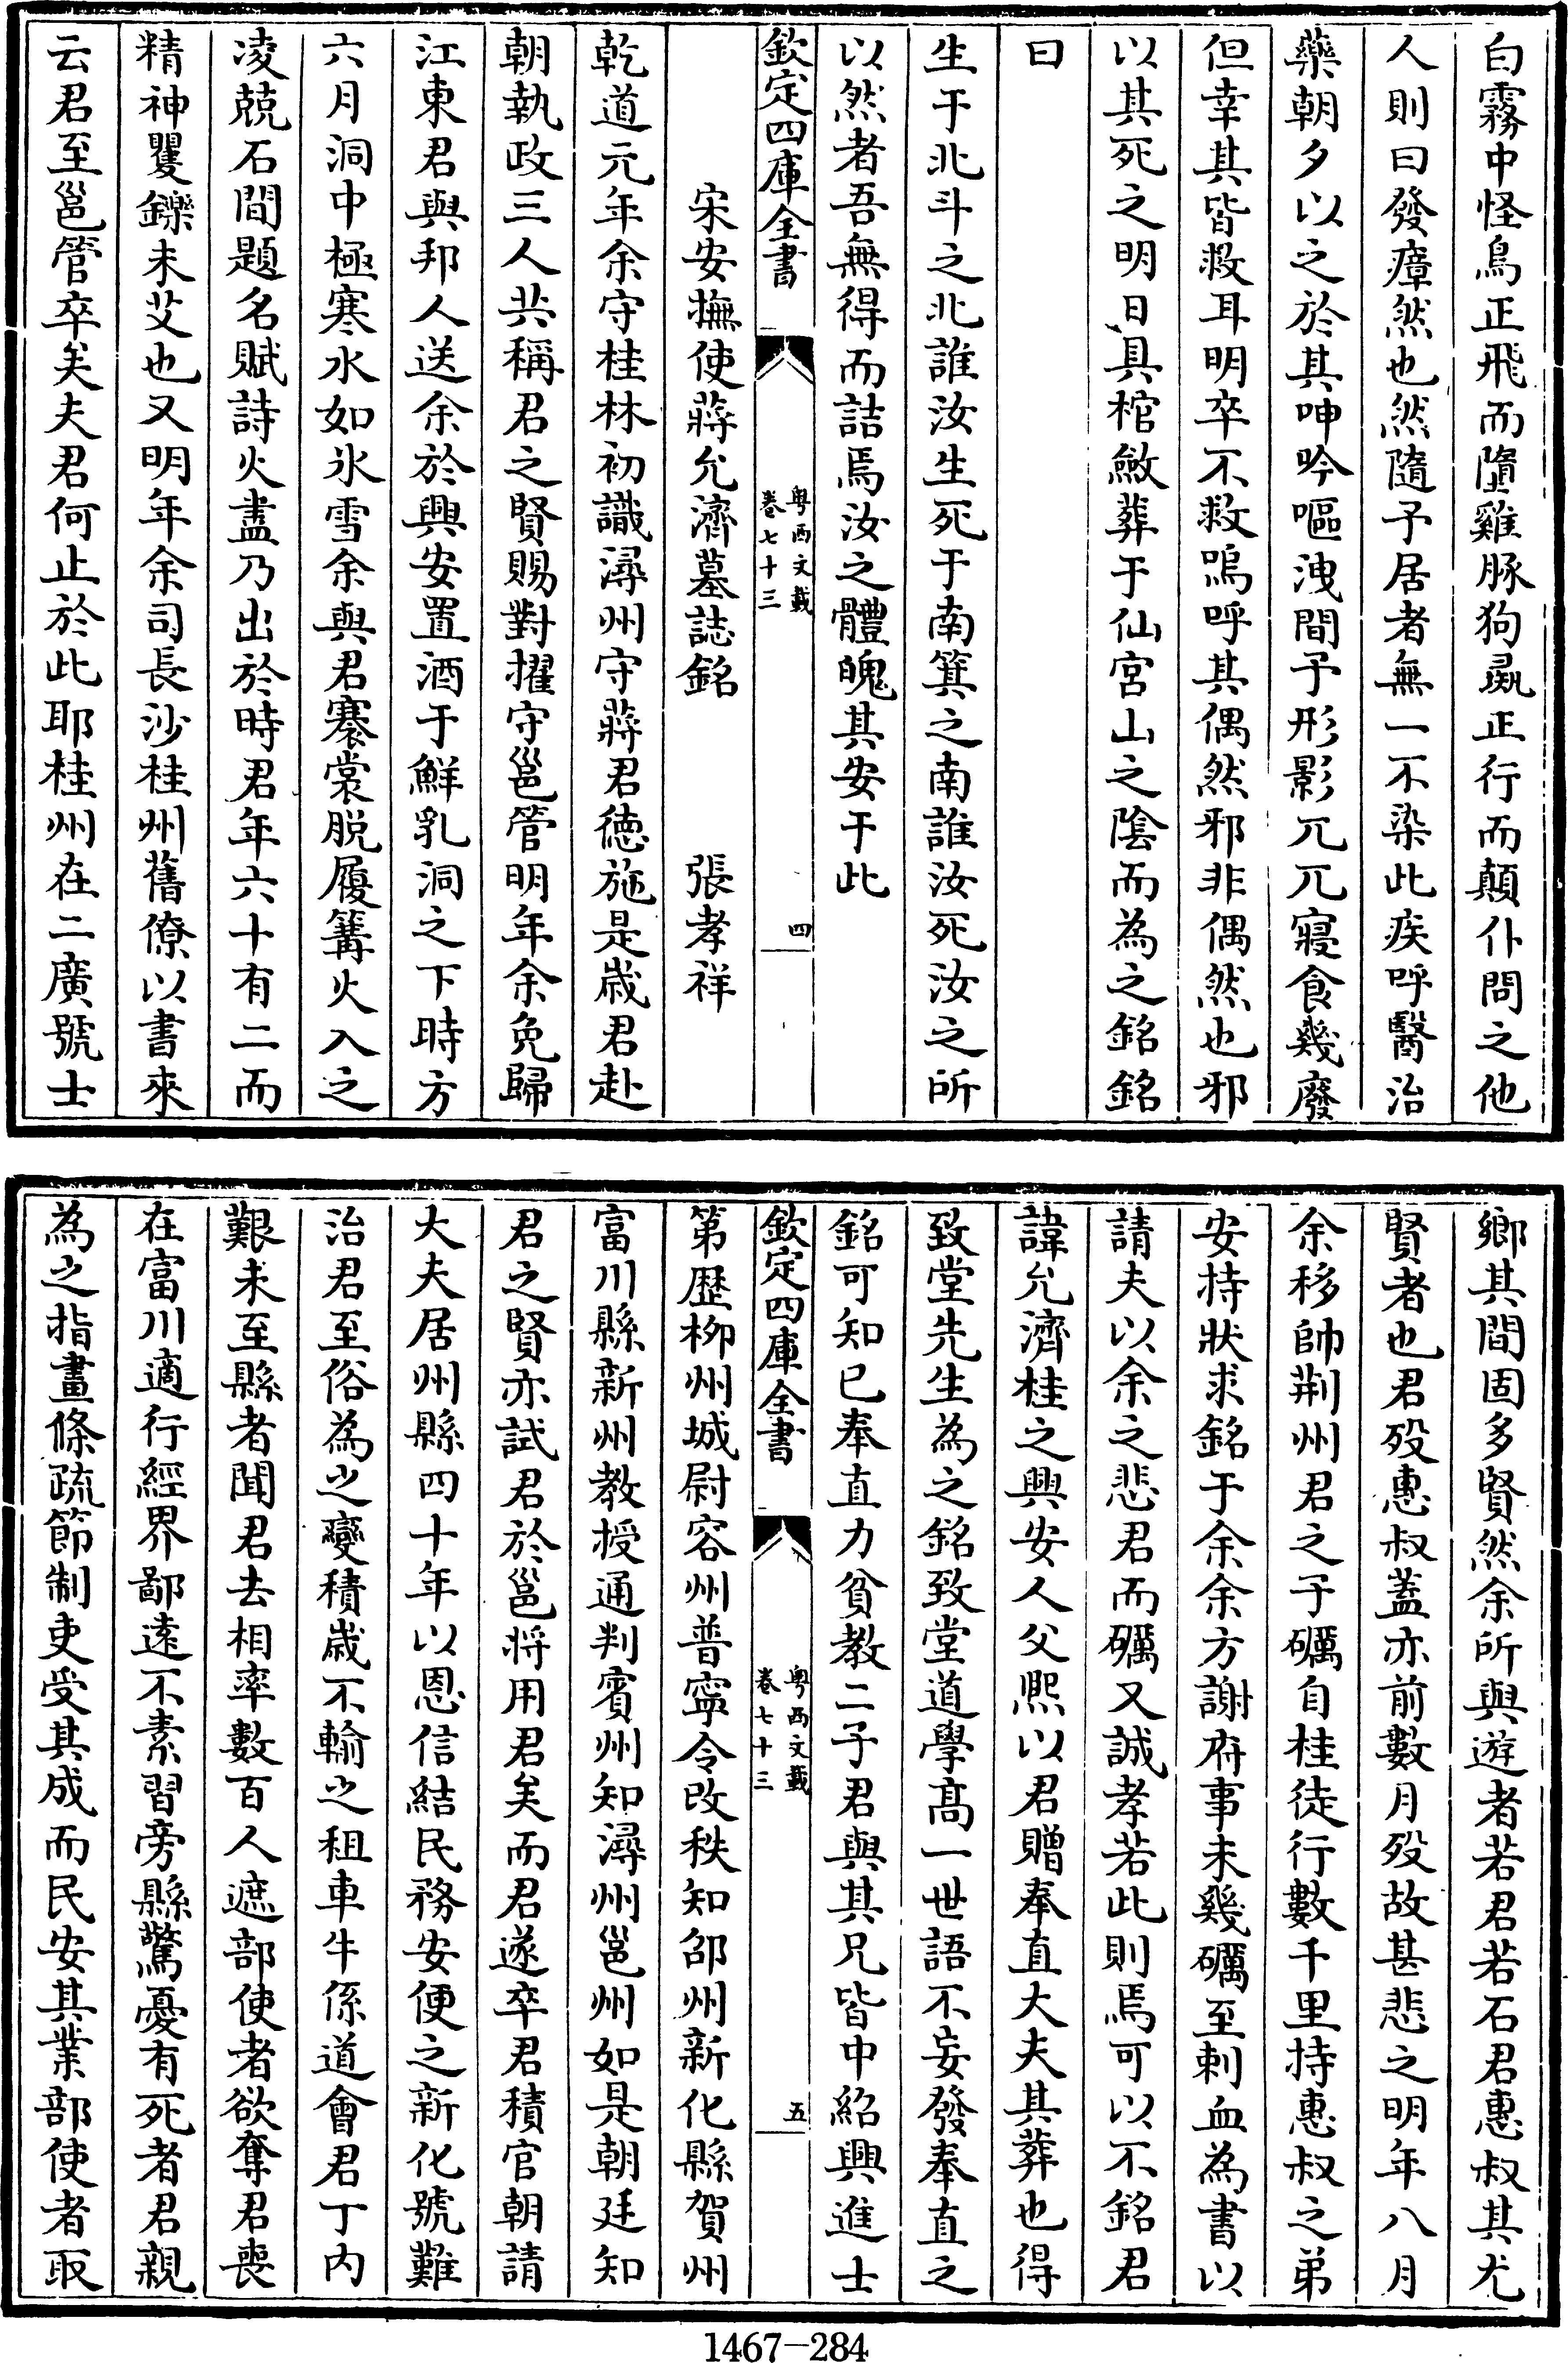 白霧中怪鳥正飛而墮雞豚狗彘正行而顛仆問之他
人則曰發瘴然也然隨予居者無一不染此疾呼醫治
藥朝夕以之於其呻吟嘔洩間予形影兀兀寢食幾廢
但幸其皆救耳明卒不救嗚呼其偶然邪非偶然也邪
以其死之明日具棺斂葬于仙宮山之陰而為之銘銘
曰
生于北斗之北誰汝生死于南箕之南誰汝死汝之所
以然者吾無得而詰焉汝之體魄其安于此
欽定四庫全書
粤西文載
卷七十三
四
宋安撫使蔣允濟墓誌銘 張孝祥
乾道元年余守桂林初識潯州守蔣君徳施是歳君赴
朝執政三人共稱君之賢賜對擢守邕管明年余免歸
江東君與邦人送余於興安置酒于鮮乳洞之下時方
六月洞中極寒水如氷雪余與君褰裳脱履篝火入之
凌兢石間題名賦詩火盡乃出於時君年六十有二而
精神矍鑠未艾也又明年余司長沙桂州舊僚以書來
云君至邕管卒矣夫君何止於此耶桂州在二廣號士
鄉其間固多賢然余所與遊者若君若石君惠叔其尤
賢者也君歿惠叔蓋亦前數月歿故甚悲之明年八月
余移帥荆州君之子礪自桂徒行數千里持惠叔之弟
安持狀求銘于余余方謝府事未幾礪至刺血為書以
請夫以余之悲君而礪又誠孝若此則焉可以不銘君
諱允濟桂之興安人父熙以君贈奉直大夫其葬也得
致堂先生為之銘致堂道學髙一世語不妄發奉直之
銘可知已奉直力貧教二子君與其兄皆中紹興進士
欽定四庫全書
粤西文載
卷七十三
五
第歷柳州城尉容州普寧令改秩知邵州新化縣賀州
富川縣新州教授通判賓州知潯州邕州如是朝廷知
君之賢亦試君於邕将用君矣而君遂卒君積官朝請
大夫居州縣四十年以恩信結民務安便之新化號難
治君至俗為之變積歳不輸之租車牛係道會君丁内
艱未至縣者聞君去相率數百人遮部使者欲奪君喪
在富川適行經界鄙逺不素習旁縣驚憂有死者君親
為之指畫條疏節制吏受其成而民安其業部使者取
1467-284